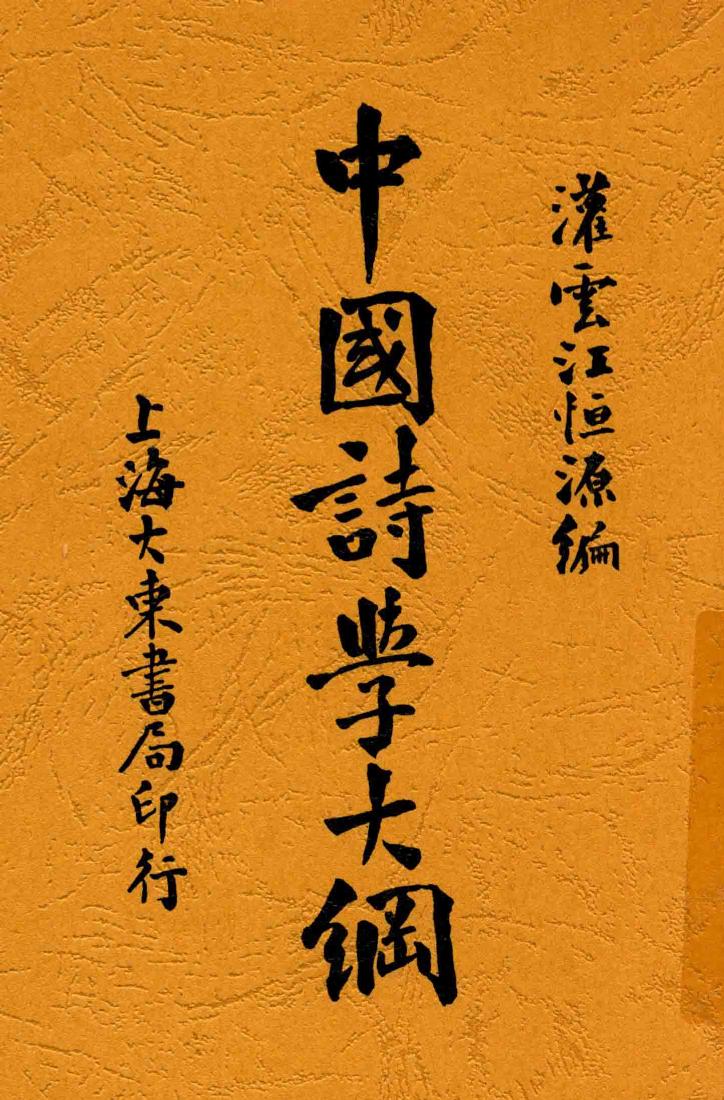 灌雲江恒源編
中國詩學大綱
上海大東書局印行